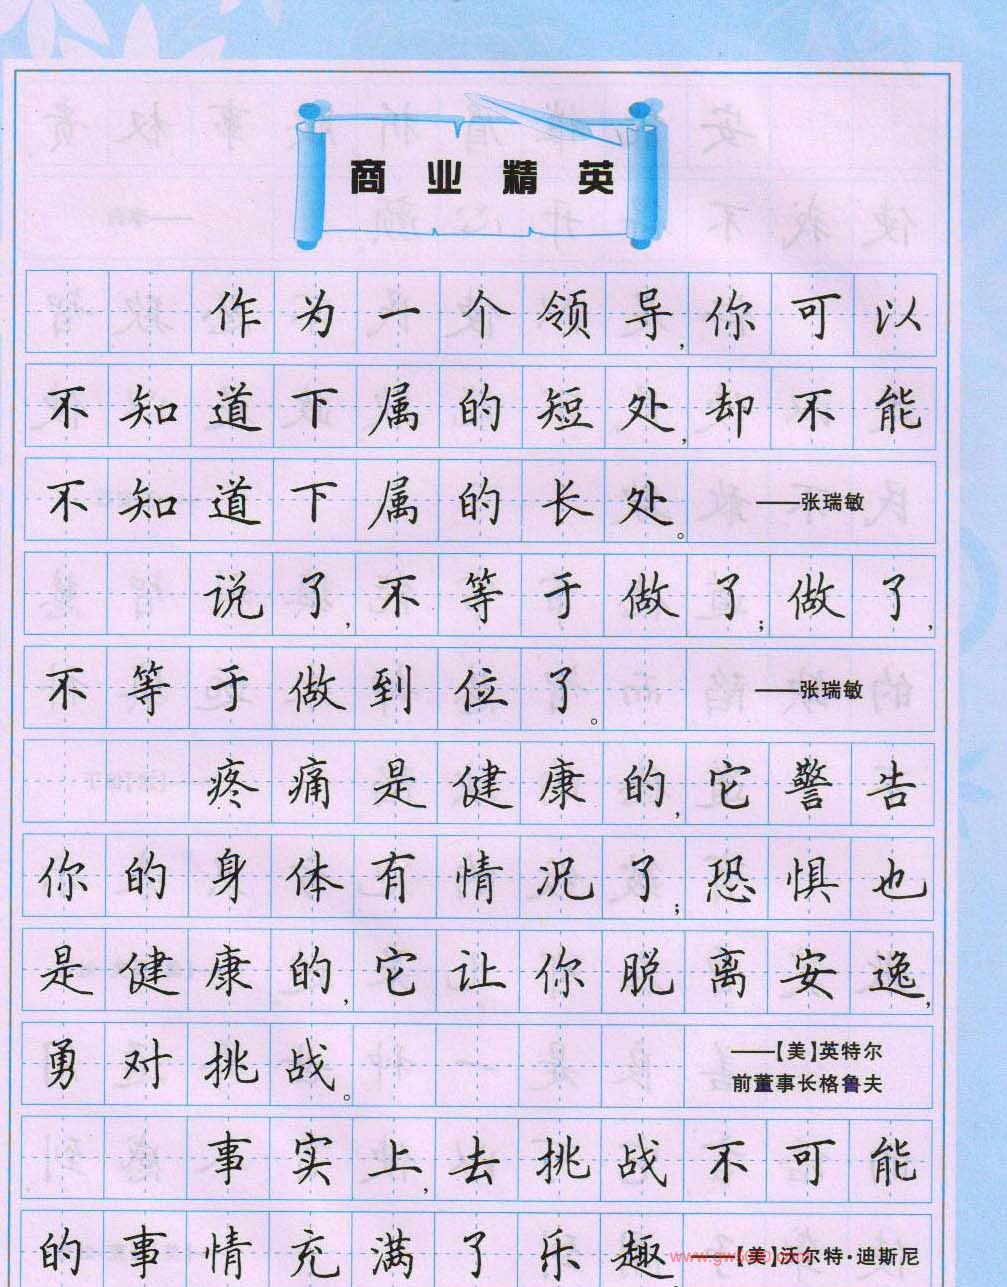 商业精英
作为一个领导,你可以
不知道下属的短处,却不能
不知道下属的长处。 ——张瑞敏
说了,不等于做了;做了,
不等于做到位了。 ——张瑞敏
疼痛是健康的,它警告
你的身体有情况了;恐惧也
是健康的,它让你脱离安逸,
勇对挑战。 ——【美】英特尔
前董事长格鲁夫
事实上,去挑战不可能
的事情充满了乐趣。 ——【美】沃尔特·迪斯尼